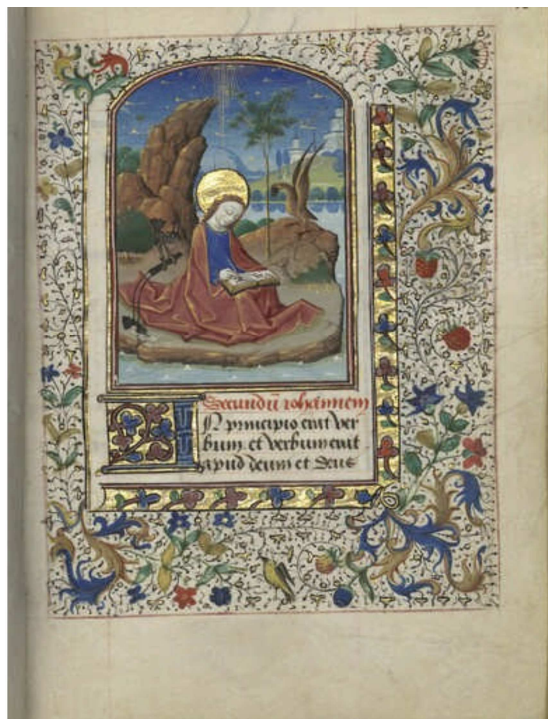 Secundū iohannem
IN principio erat ver
bum et verbum erat
apud deum et deus